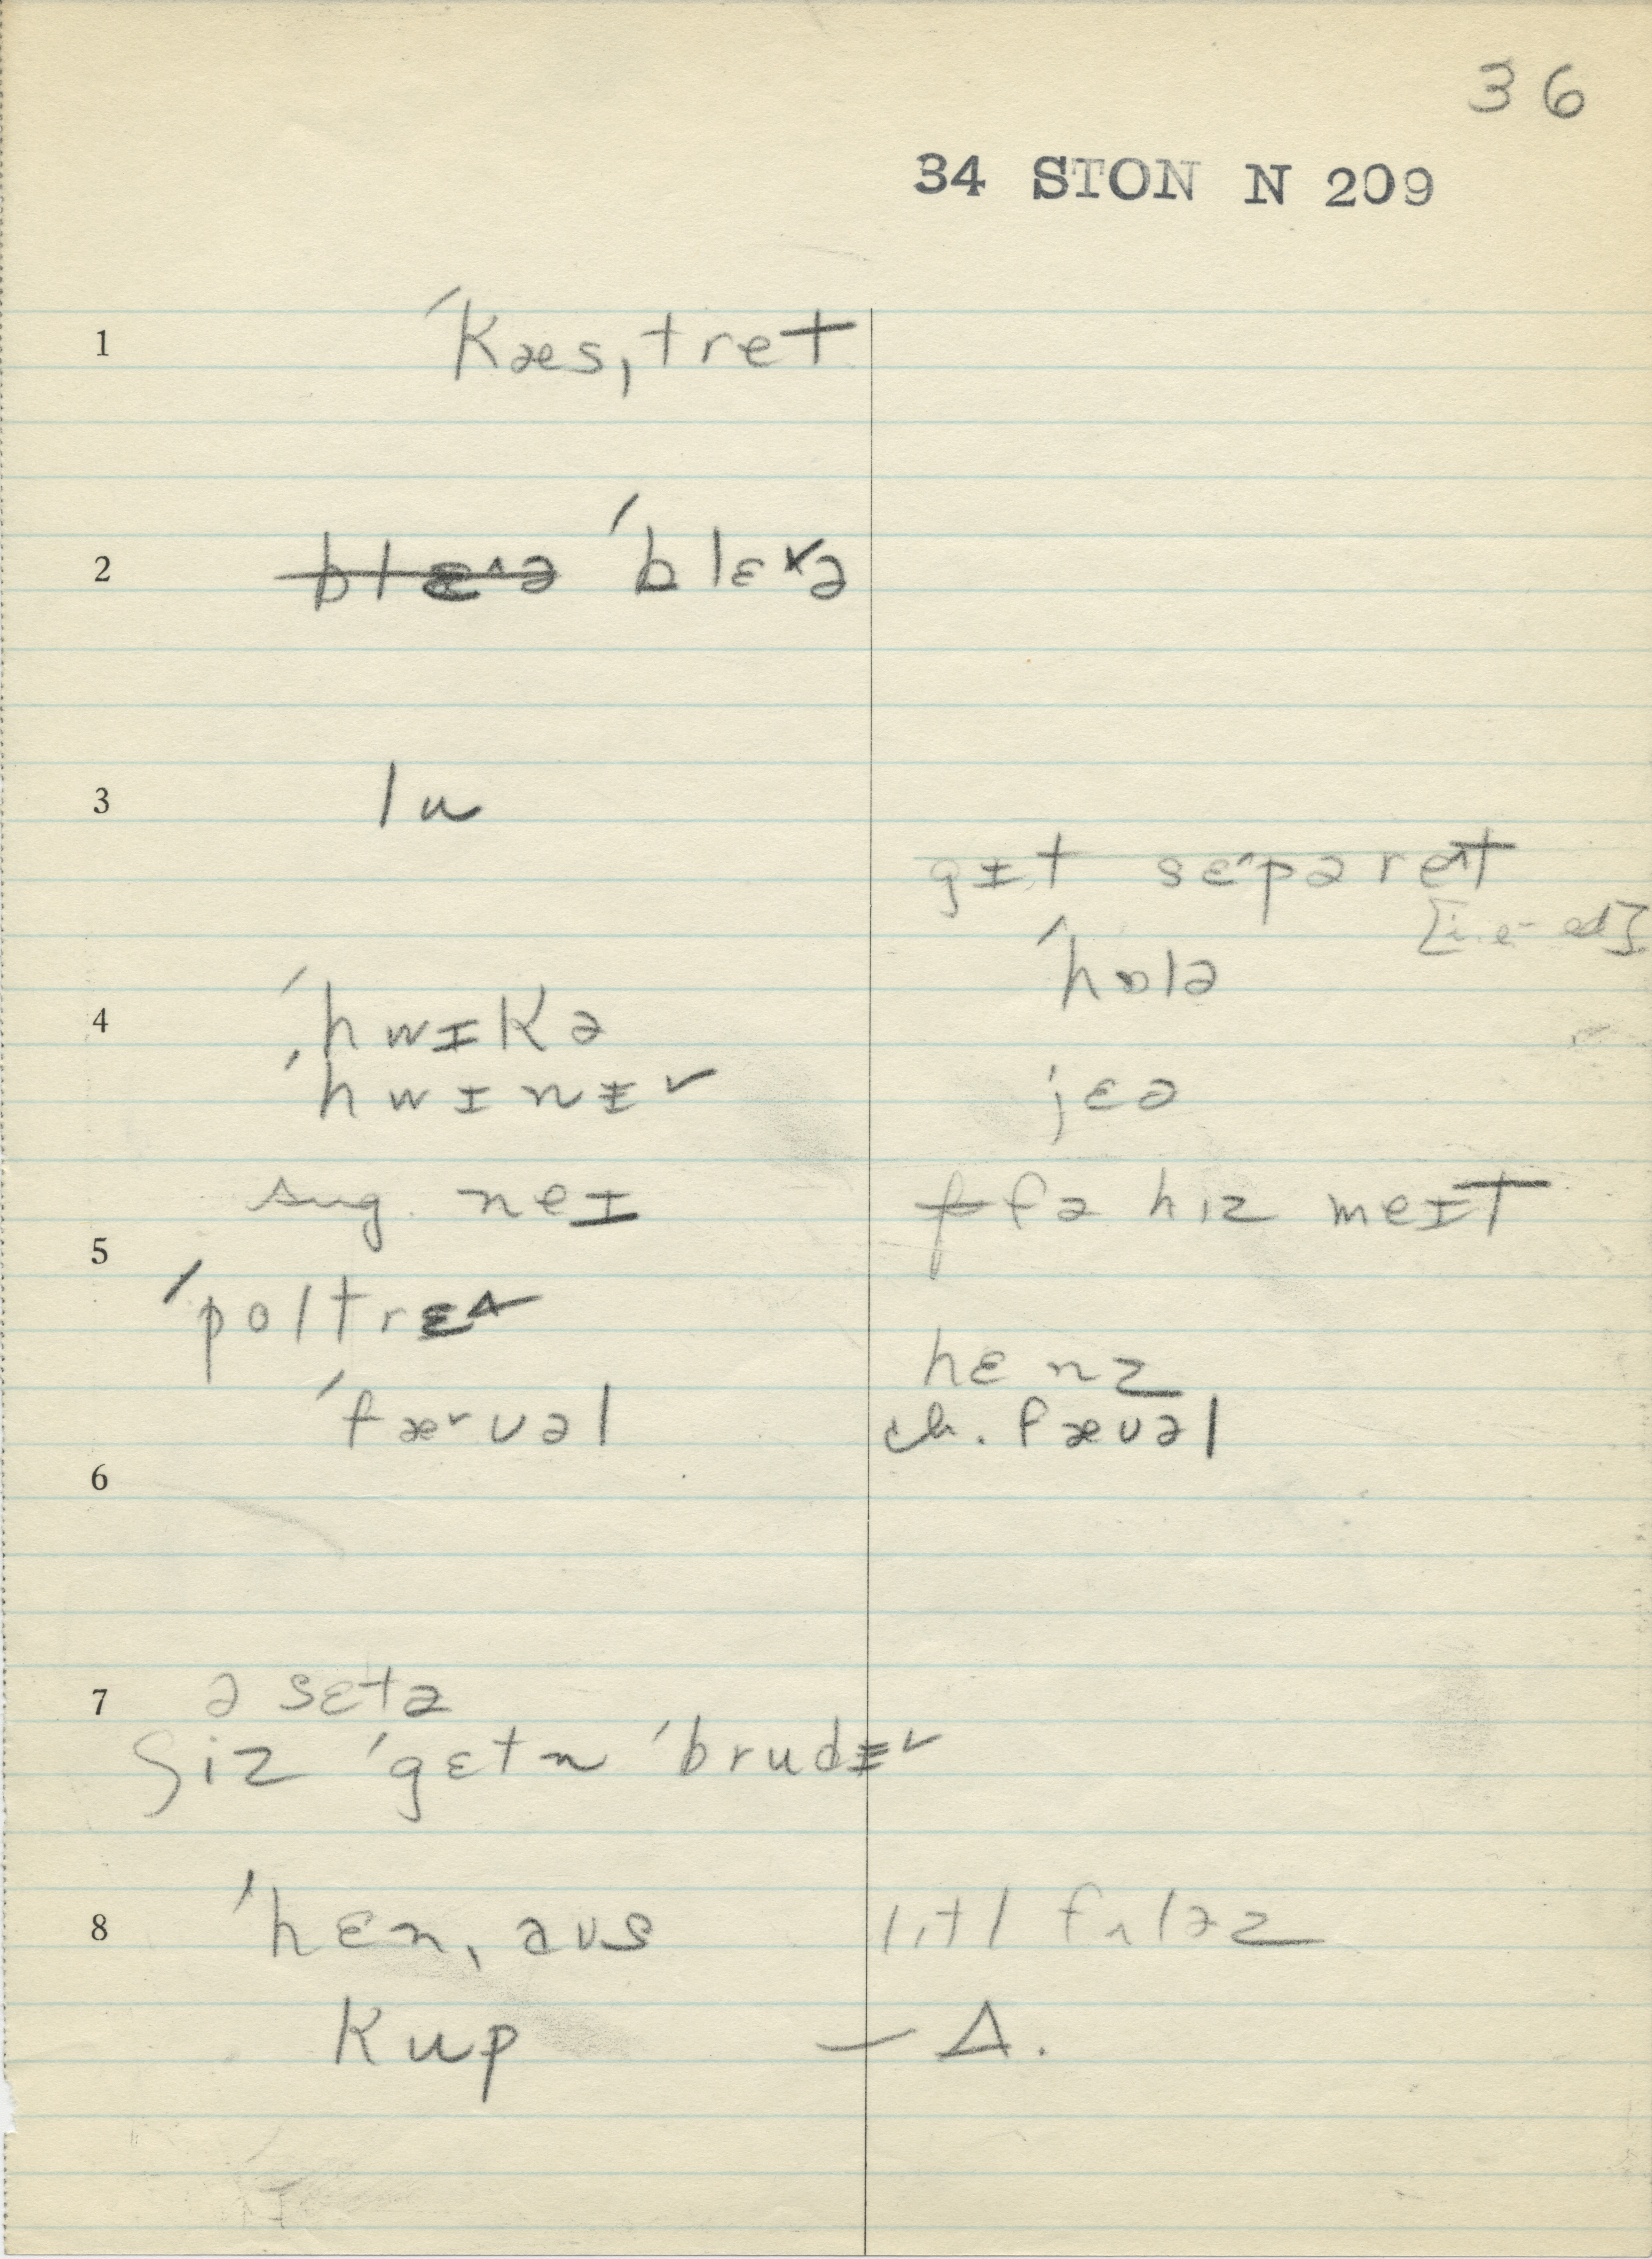 36
34 STON N 209
1 ˈkæsˌtret
2 ˈblɛ˅ə
3 lu
gɪt sɛ˄pəret
[i.e. -ed]
ˈhɒlə
4 ˈhwɪkə
ˈhwɪnɨ˅
jɛə
sug. neɪ
fə hiz meɪt
5
ˈpoltrɛ˄
hɛnz
ˈfæ˅vəl
ch. fævəl
6
7 ə sɛtə
ʃiz ˈgɛtn ˈbrudɨ˅
8 ˈhɛnˌaus
lɪtl fʌləz
kup — Δ.